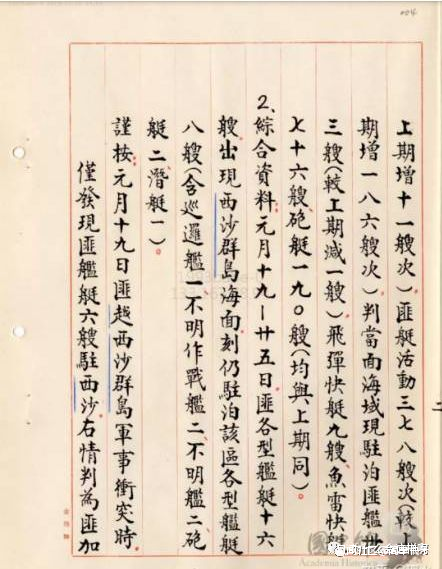 004
上期增十一艘次）匪艇活動三七八艘次（較
期增一八六艘次）判當面海域現駐泊匪艦卅
三艘（較上期減一艘）飛彈快艇九艘魚雷快艇
七十六艘砲艇一九〇艘（均與上期同）。
2、綜合資料元月十九—廿五日匪各型艦艇十六
艘出現西沙群島海面刻仍駐泊該區各型艦艇
八艘（含巡邏艦一不明作戰艦二不明艦二砲
艇二潛艇一）。
謹按元月十九日匪越西沙群島軍事衝突時
僅發現匪艦艇六艘駐西沙。右情判為匪加
二
Academia Historica